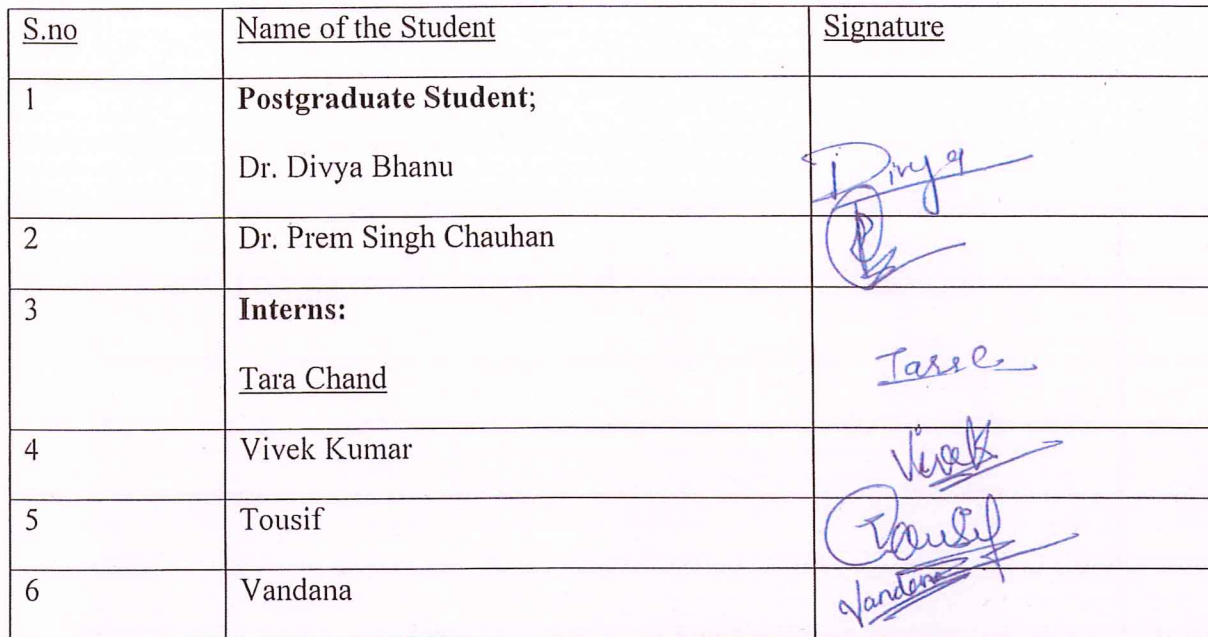 S.no Name of the Student Signature
1 Postgraduate Student;
Dr. Divya Bhanu Divya
2 Dr. Prem Singh Chauhan
3 Interns:
Tara Chand
4 Vivek Kumar Vivek
5 Tousif Tousif
6 Vandana Vandana